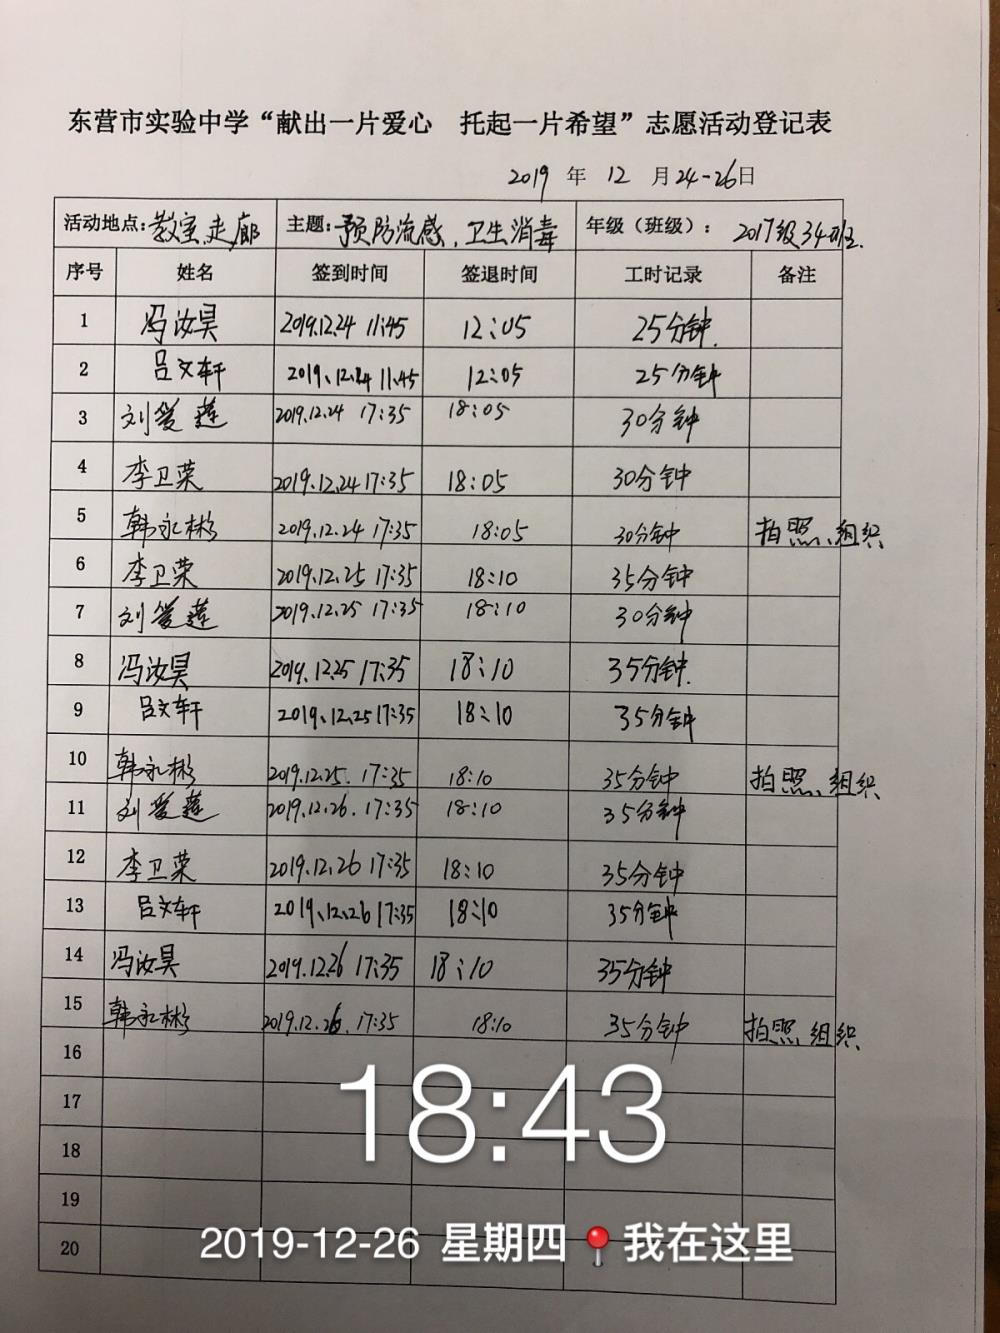 东营市实验中学“献出一片爱心 托起一片希望”志愿活动登记表
2019 年 12 月 24-26日
活动地点:教室,走廊 主题:预防流感、卫生消毒 年级(班级): 2017级34班.
序号 姓名 签到时间 签退时间 工时记录 备注
1 冯汝昊 2019.12.24 11:45 12:05 25分钟.
2 吕文轩 2019.12.24 11.45 12:05 25分钟
3 刘爱莲 2019.12.24 17:35 18:05 30分钟
4 李卫荣 2019.12.24 17:35 18:05 30分钟
5 韩永彬 2019.12.24 17:35 18:05 30分钟 拍照、组织
6 李卫荣 2019.12.25 17:35 18:10 35分钟
7 刘爱莲 2019.12.25 17:35 18:10 30分钟
8 冯汝昊 2019.12.25 17:35 18:10 35分钟.
9 吕文轩 2019.12.25 17:35 18:10 35分钟
10 韩永彬 2019.12.25. 17:35 18:10 35分钟 拍照、组织
11 刘爱莲 2019.12.26. 17:35 18:10 35分钟
12 李卫荣 2019.12.26 17:35 18:10 35分钟
13 吕文轩 2019.12.26 17:35 18:10 35分钟
14 冯汝昊 2019.12.26 17:35 18:10 35分钟
15 韩永彬 2019.12.26. 17:35 18:10 35分钟 拍照、组织
16
17
18
19
20
18:43
2019-12-26 星期四 我在这里